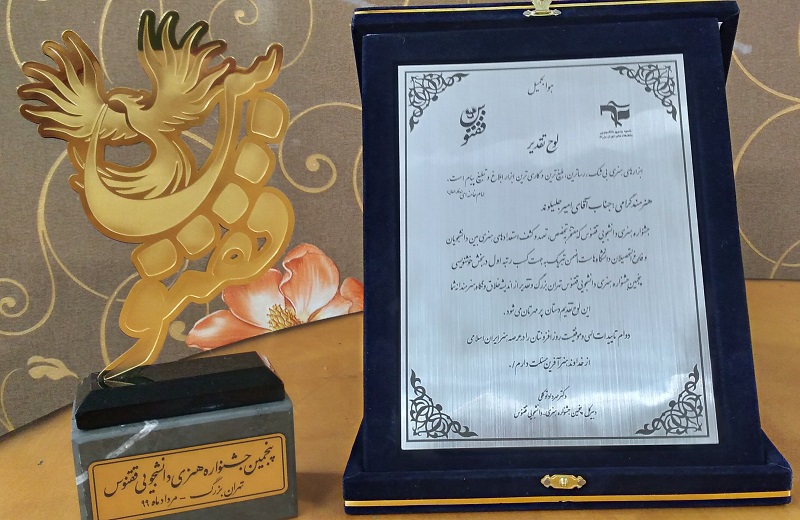 ققنوس
پنجمین جشنواره هنری دانشجویی ققنوس
تهران بزرگ - مرداد ماه ۹۹
هوالجمیل
ققنوس
لوح تقدیر
ابزارهای هنری بی شک، رساترین، بلیغ ترین و کاری ترین ابزار ابلاغ و تبلیغ پیام است.
امام خامنه ای
هنرمند گرامی؛ جناب آقای امیر جلیلوند
جشنواره هنری دانشجویی ققنوس که منظر تخصص، تعهد و کشف استعدادهای هنری بین دانشجویان
و فارغ التحصیلان دانشگاه هاست، ضمن تبریک به جهت کسب رتبه اول در بخش خوشنویسی
پنجمین جشنواره هنری دانشجویی ققنوس تهران بزرگ و تقدیر از اندیشه خلاق و نگاه هنرمندانه شما
این لوح تقدیم دستان پر مهرتان می شود.
دوام تاییدات الهی و موفقیت روز افزونتان را در عرصه هنر ایران اسلامی
از خداوند هنر آفرین مسئلت دارم./
دبیر کل پنجمین جشنواره هنری دانشجویی ققنوس